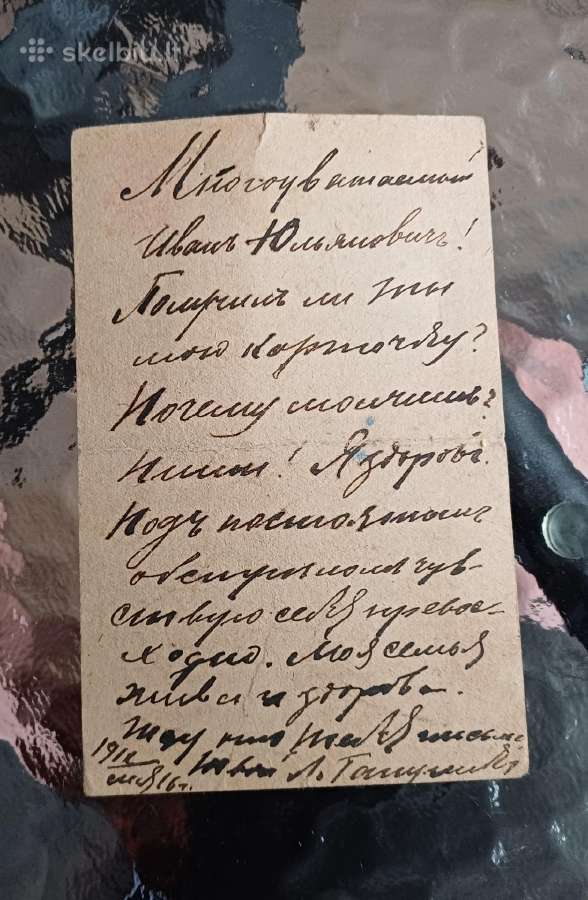 skelbiu.lt
Многоуважаемый
Иванъ Юльяновичъ!
Получилъ ли ты
мою карточку?
Почему молчишь?
Пиши! Я здоровъ.
Подъ постояннымъ
обстрѣломъ чув-
ствую себя превос-
ходно. Моя семья
жива и здорова.
Жду отъ тебя письма
Твой Л.
191
16 г.